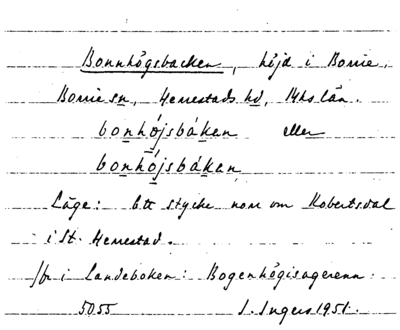 Bonnhögsbacken, höjd i Borrie,
Borrie sn, Herrestads hd, Mhs län.
bonhöjsbáken eller
bonhöjsbáken
Läge: Ett stycke norr om Robertsdal
i St. Herrestad.
Jfr i Landeboken: Bogenhögisagerenn.
5055 I. Ingers 1951.